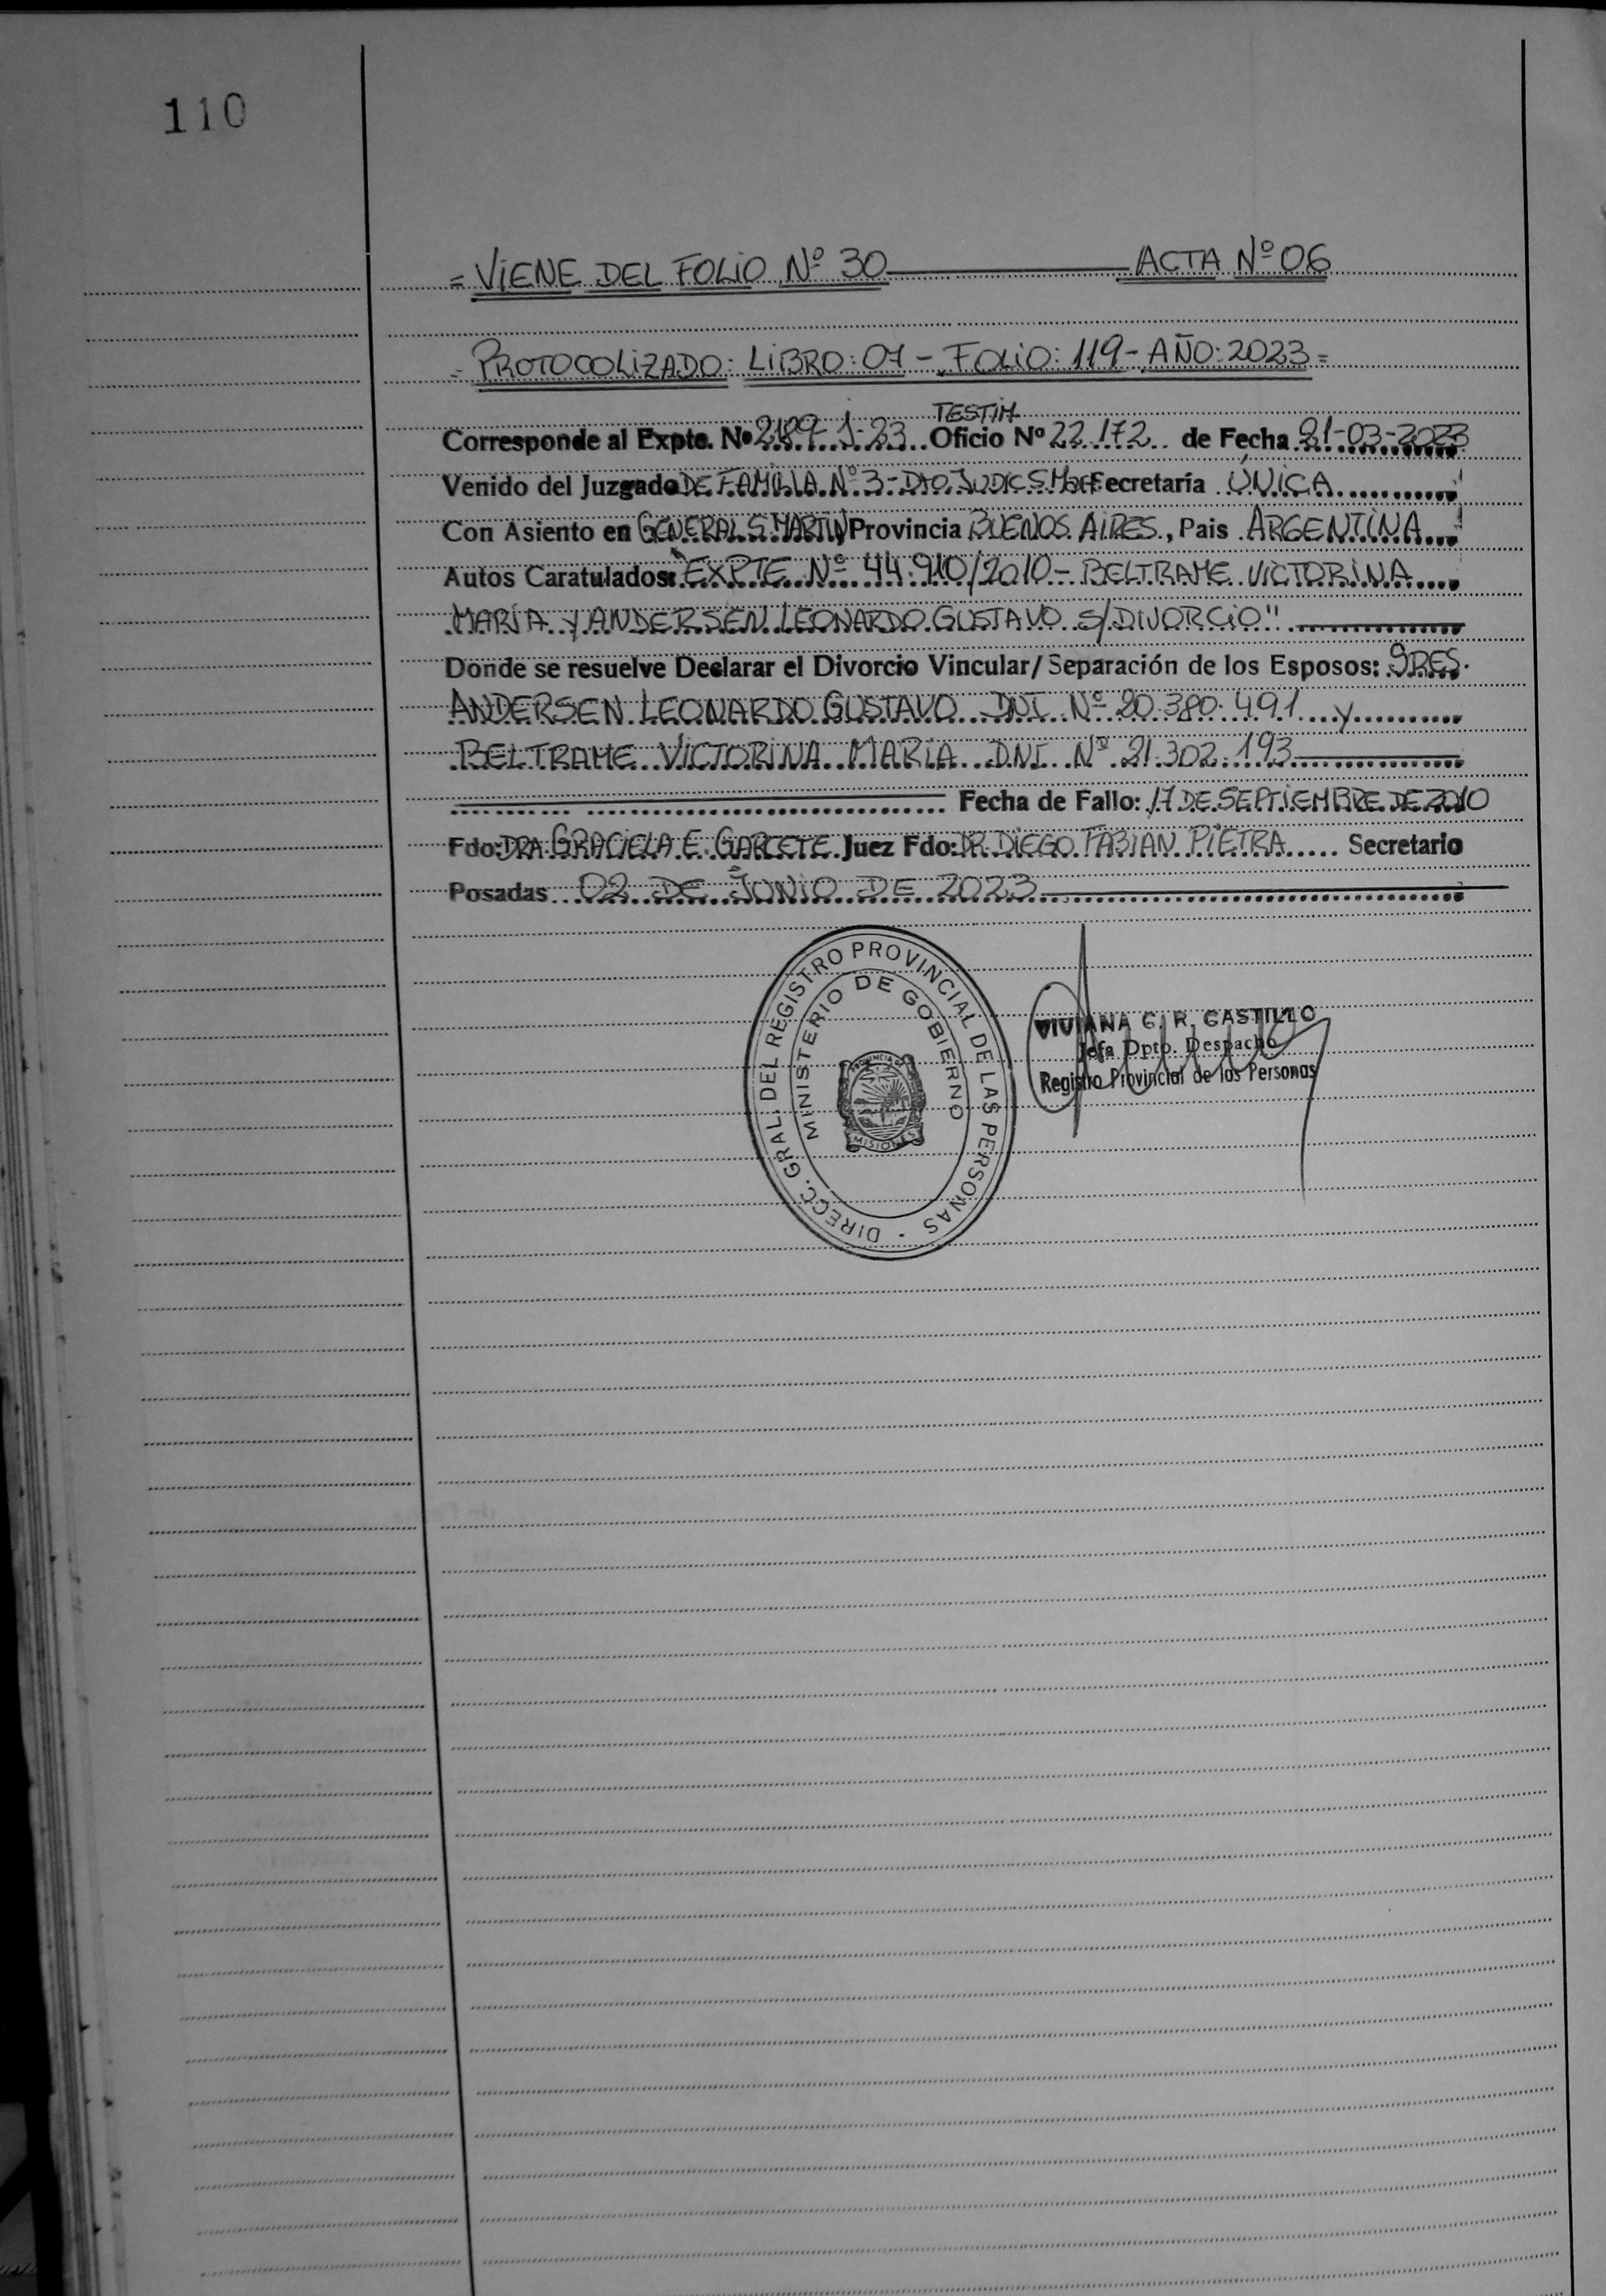 110
= VIENE DEL FOLIO Nº 30 ACTA Nº 06
= PROTOCOLIZADO: LIBRO: 01 - FOLIO: 119 - AÑO: 2023 =
TESTIM
Corresponde al Expte. Nº 2189-J-23 Oficio Nº 22.172 de Fecha 21-03-2023
Venido del Juzgado DE FAMILIA Nº 3 - DTO. JUDIC. S. Secretaría ÚNICA
Con Asiento en GENERAL S. MARTIN Provincia BUENOS AIRES, Pais ARGENTINA
Autos Caratulados: EXPTE Nº 44.910/2010 - BELTRAME VICTORINA
MARÍA Y ANDERSEN LEONARDO GUSTAVO S/ DIVORCIO"
Donde se resuelve Declarar el Divorcio Vincular/Separación de los Esposos: SRES.
ANDERSEN LEONARDO GUSTAVO DNI Nº 20.380.491 y
BELTRAME VICTORINA MARÍA DNI Nº 21.302.193
Fecha de Fallo: 17 DE SEPTIEMBRE DE 2010
Fdo: DRA. GRACIELA E. GARCETE Juez Fdo: DR. DIEGO FABIAN PIETRA Secretario
Posadas 02 DE JUNIO DE 2023
DIRECC. GRAL. DEL REGISTRO PROVINCIAL DE LAS PERSONAS
MINISTERIO DE GOBIERNO
MISIONES
VIVIANA G. R. CASTILLO
Jefa Dpto. Despacho
Registro Provincial de las Personas